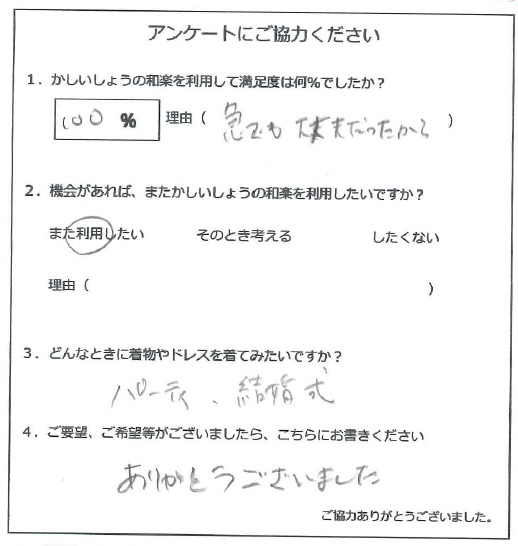 アンケートにご協力ください
1．かしいしょうの和楽を利用して満足度は何%でしたか？
100 % 理由（ 急でも大丈夫だったから ）
2．機会があれば、またかしいしょうの和楽を利用したいですか？
また利用したい そのとき考える したくない
理由（ ）
3．どんなときに着物やドレスを着てみたいですか？
パーティ、結婚式
4．ご要望、ご希望等がございましたら、こちらにお書きください
ありがとうございました
ご協力ありがとうございました。